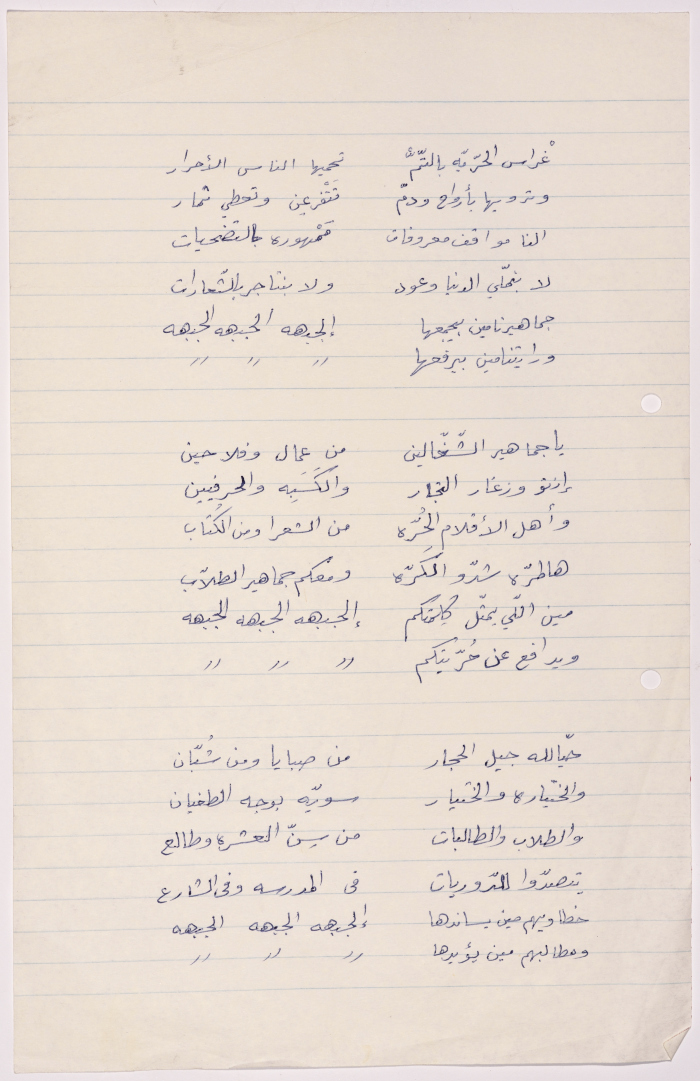 غراس الحرّيّه بالتّمّ تحميها الناس الأحرار
وترويها بأرواح ودمّ تتْفرعن وتعطي ثمار
النا مواقف معروفات مَمْهوره بالتضحيات
لا بنملّي الدنيا وعود ولا بنتاجر بالشّعارات
جماهيرنا مين بيجمعها إلجبهه الجبهه الجبهه
ورايتنا مين بيرفعها " " "
يا جماهير الشّغّالين من عمال وفلاحين
إنتو وزغار التجار والكَسَبِه والحرفيين
وأهل الأقلام الحُرّه من الشعرا ومن الكُتّاب
هالمرّه شدّو الكرّه ومعكم جماهير الطلاّب
مين اللّي يمثّل كلمتكم إلجبهه الجبهه الجبهه
ويدافع عن حُرّيتكم " " "
حيّالله جيل الحجار من صبايا ومن شُبّان
والختياره والختيار سويّه بوجه الطغيان
والطلاب والطالبات من سِنّ العشره وطالع
يتصدّوا للدّوريات في المدرسه وفي الشارع
خطاويهم مين يساندها إلجبهه الجبهه الجبهه
ومطالبهم مين يؤيدها " " "